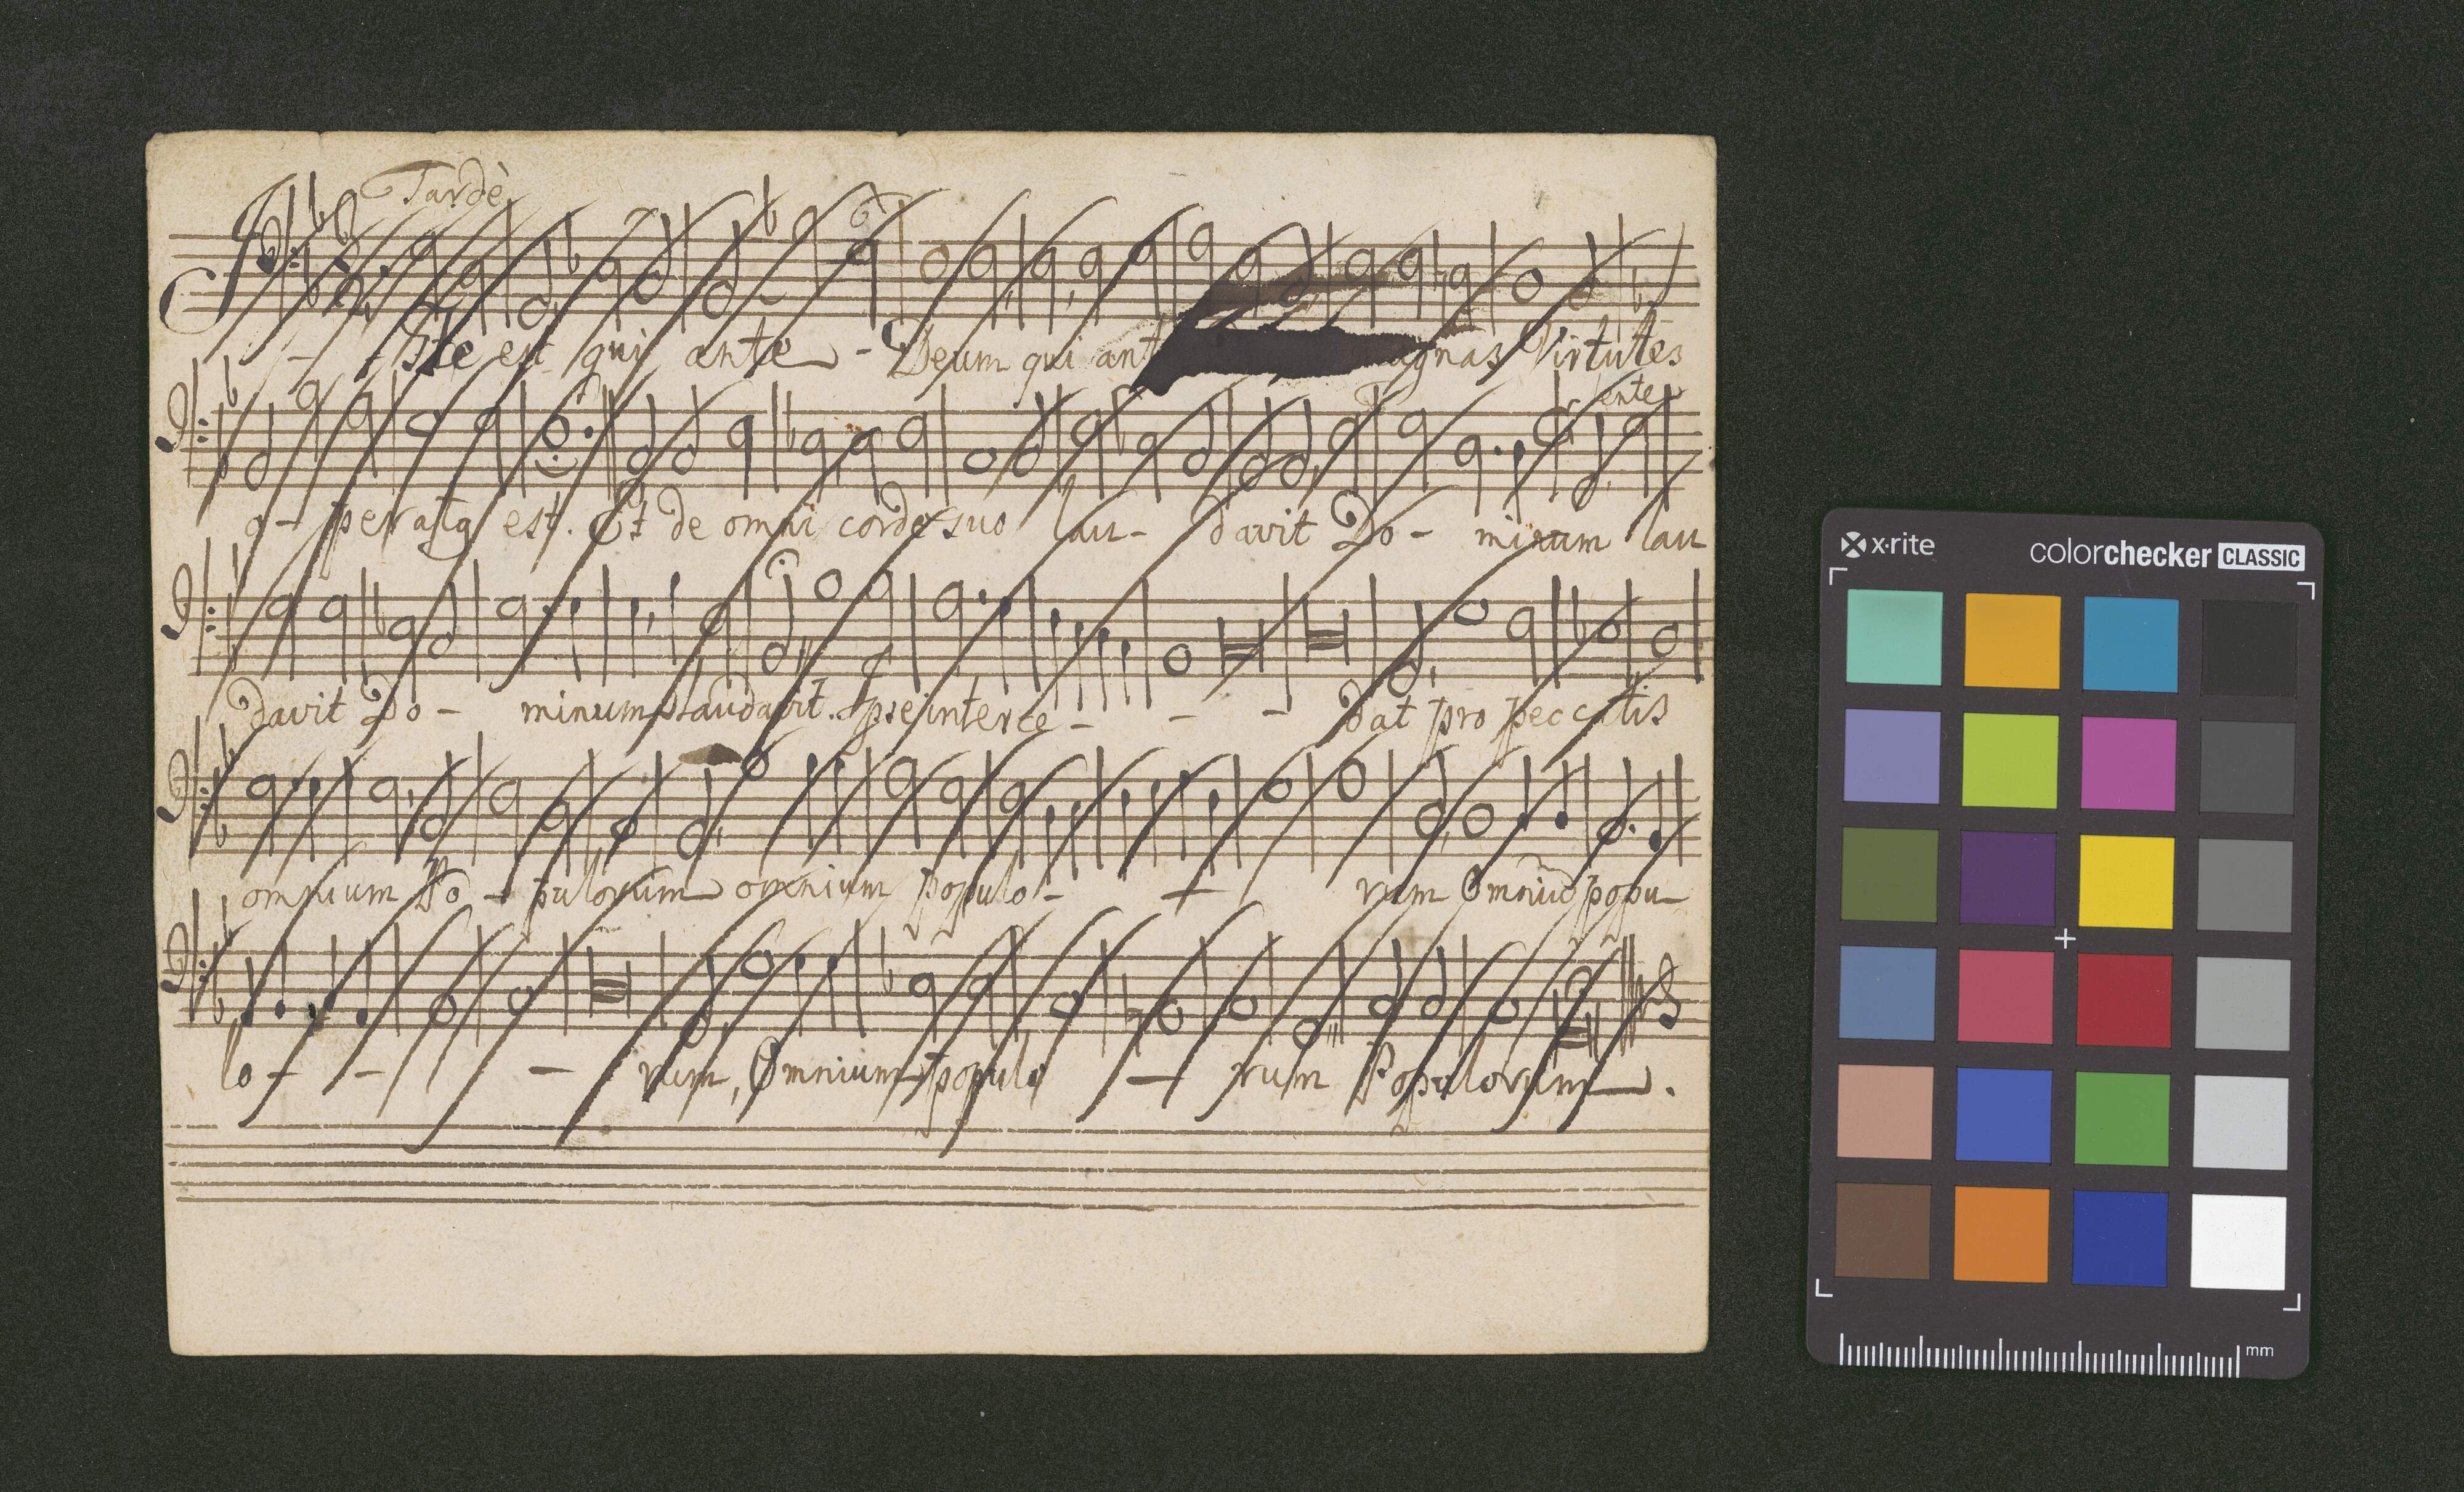 Tardè
Iste est qui ante - Deum qui ant Virtutes
ente
o - peratq est. Et de omni corde suo lau - davit Do - minum lau
davit Do - minum laudavit. Ipse interce - - - dat pro peccatis
omnium Po - pulorum omnium populo - - rum Omniũ popu
lo - - - rum, Omnium populo - rum Populorum.
x·rite
colorchecker CLASSIC
mm